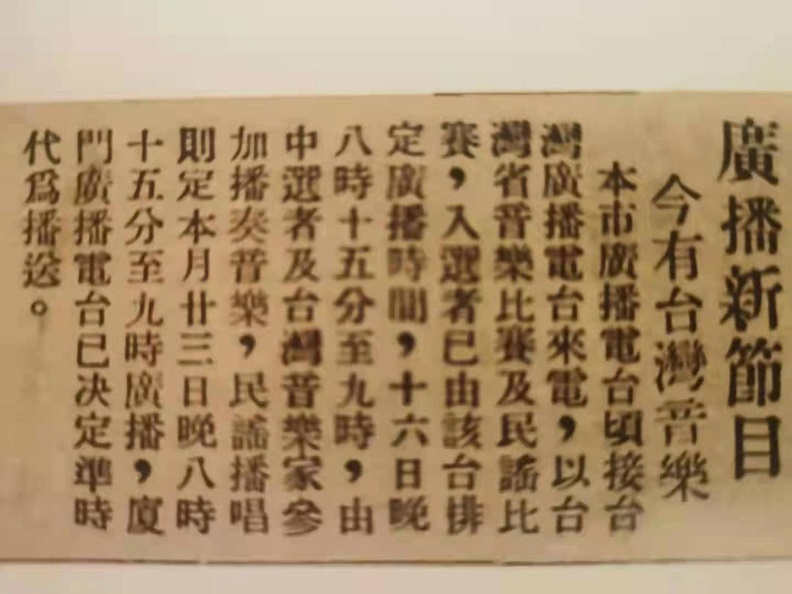 廣播新節目
今有台灣音樂
本市廣播電台頃接台
灣廣播電台來電，以台
灣省音樂比賽及民謠比
賽，入選者已由該台排
定廣播時間，十六日晚
八時十五分至九時，由
中選者及台灣音樂家參
加播奏音樂，民謠播唱
則定本月廿三日晚八時
十五分至九時廣播，廈
門廣播電台已决定準時
代爲播送。